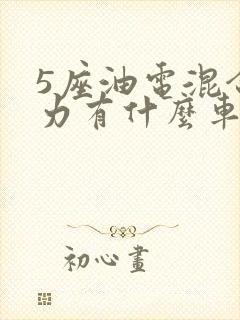 5座油電混合
力有什麼車
初心畫